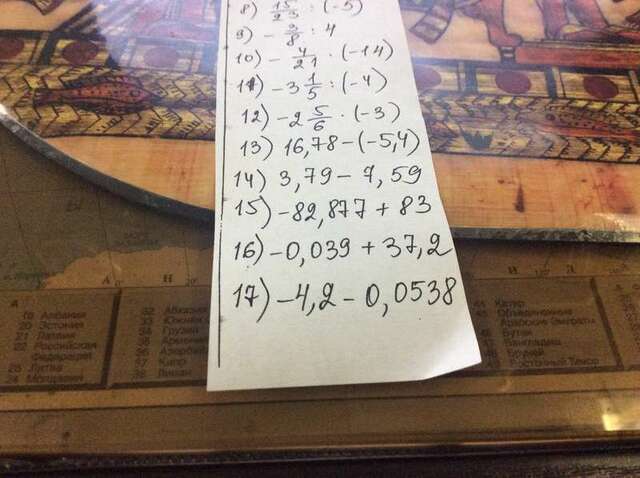 8) 15/23 : (-5)
9) - 3/8 : 4
10) - 4/21 · (-14)
11) - 3 1/5 : (-4)
12) - 2 5/6 · (-3)
13) 16,78 - (-5,4)
14) 3,79 - 7,59
15) -82,877 + 83
16) -0,039 + 37,2
17) -4,2 - 0,0538
А
19 Албания
20 Эстония
21 Латвия
22 Российская
Федерация
23 Литва
24 Молдавия
32 Абхазия
33 Южная
34 Грузия
35 Армения
36 Азербай
37 Кипр
38 Ливан
44 Катар
45 Объединенные
Арабские Эмираты
46 Бутан
47 Бангладеш
48 Бруней
Восточный Тимор